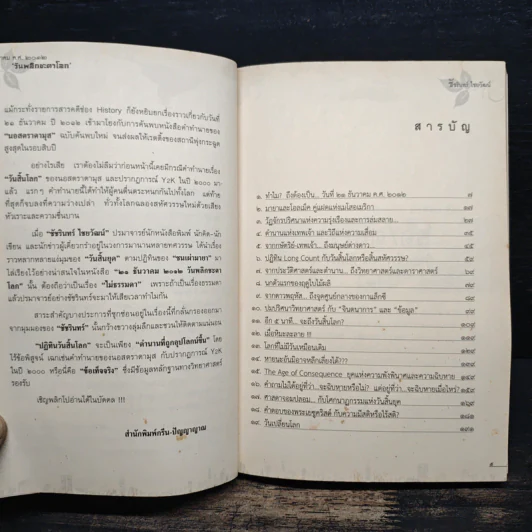 าคม ค.ศ. ๒๐๑๒
'วันพลิกชะตาโลก'
แม้กระทั่งรายการสารคดีช่อง History ก็ยังหยิบยกเรื่องราวเกี่ยวกับวันที่
๒๑ ธันวาคม ปี ๒๐๑๒ เข้ามาโยงกับการค้นพบหนังสือคำทำนายของ
"นอสตราดามุส" ฉบับค้นพบใหม่ จนส่งผลให้เรตติ้งของสถานีพุ่งกระฉูด
สูงสุดในรอบสิบปี
อย่างไรเสีย เราต้องไม่ลืมว่าก่อนหน้านี้เคยมีกรณีคำทำนายเรื่อง
"วันสิ้นโลก" ของนอสตราดามุส และปรากฏการณ์ Y2K ในปี ๒๐๐๐ มา
แล้ว แรกๆ คำทำนายนี้ได้ทำให้ผู้คนตื่นตระหนกกันไปทั้งโลก แต่ท้าย
ที่สุดก็จบลงที่ความว่างเปล่า ทั่วทั้งโลกฉลองสหัสวรรษใหม่ด้วยเสียง
หัวเราะและความชื่นบาน
เมื่อ "ชัชรินทร์ ไชยวัฒน์" ปรมาจารย์นักหนังสือพิมพ์ นักคิด-นัก
เขียน และนักข่าวผู้เคี่ยวกรำอยู่ในวงการมานานหลายทศวรรษ ได้นำเรื่อง
ราวหลากหลายแง่มุมของ "วันสิ้นยุค" ตามปฏิทินของ "ชนเผ่ามายา" มา
ไล่เรียงไว้อย่างน่าสนใจในหนังสือ "๒๑ ธันวาคม ๒๐๑๒ วันพลิกชะตา
โลก" นั้น ต้องถือว่าเป็นเรื่อง "ไม่ธรรมดา" เพราะถ้าเป็นเรื่องธรรมดา
แล้วปรมาจารย์อย่างชัชรินทร์จะมาให้เสียเวลาทำไมกัน
สาระสำคัญบางประการที่ซุกซ่อนอยู่ในเรื่องนี้ที่กลั่นกรองออกมา
จากมุมมองของ "ชัชรินทร์" นั้นกว้างขวางลุ่มลึกและชวนให้ติดตามแน่นอน
"ปฏิทินวันสิ้นโลก" จะเป็นเพียง "ตำนานที่ถูกอุปโลกน์ขึ้น" โดย
ไร้ข้อพิสูจน์ เฉกเช่นคำทำนายของนอสตราดามุส กับปรากฏการณ์ Y2K
ในปี ๒๐๐๐ หรือนี่คือ "ข้อเท็จจริง" ซึ่งมีข้อมูลหลักฐานทางวิทยาศาสตร์
รองรับ
เชิญพลิกไปอ่านได้ในบัดดล !!!
สำนักพิมพ์กรีน-ปัญญาญาณ
ชัชรินทร์ ไชยวัฒน์
สารบัญ
๑. ทำไม? ถึงต้องเป็น... วันที่ ๒๑ ธันวาคม ค.ศ. ๒๐๑๒ ๗
๒. มายาและโอลเม็ค คู่แฝดแห่งเมโสอเมริกา
๓. วัฏจักรปริศนาแห่งความรุ่งเรืองและการล่มสลาย...
๔. ตำนานแห่งเทพเจ้า และวิถีแห่งความเสื่อม
๕. จากพีระมิด-เทพเจ้า... ถึงมนุษย์ต่างดาว...
๖. ปฏิทิน Long Count กับวันสิ้นโลกหรือสิ้นสหัสวรรษ?
๗. จากประวัติศาสตร์และตำนาน... ถึงวิทยาศาสตร์และดาราศาสตร์
๘. นกตัวแรกของฤดูใบไม้ผลิ
๙. จากดาวพฤหัส... ถึงจุดศูนย์กลางของกาแล็กซี
๑๐. ปมปริศนาวิทยาศาสตร์ กับ "จินตนาการ" และ "ข้อมูล"
๑๑. อีก ๕ นาที... จะถึงวันสิ้นโลก? ๑๐๙
๑๒. เมื่อหิมะละลาย !!!
๑๓. โลกที่ไม่มีวันเหมือนเดิม
๑๔. หายนะอันมิอาจหลีกเลี่ยงได้???
๑๕. The Age of Consequence ยุคแห่งความพังพินาศและความฉิบหาย
๑๖. คำถามไม่ได้อยู่ที่ว่า...จะฉิบหายหรือไม่? แต่อยู่ที่ว่า...จะฉิบหายเมื่อไหร่?
๑๗. ศาสดาจอมปลอม... กับโศกนาฏกรรมแห่งวันสิ้นยุค ๑๖๙
๑๘. คำสอนของพระเยซูคริสต์ กับความมีสติหรือไร้สติ? ๑๘๑
๑๙. วันเปลี่ยนโลก ๑๙๑
๕